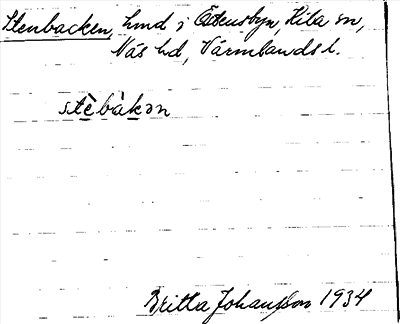 Stenbacken, hmd i Östensbyn, Kila sn,
Näs hd, Värmlands l.
stèbàkən
Britta Johansson 1934